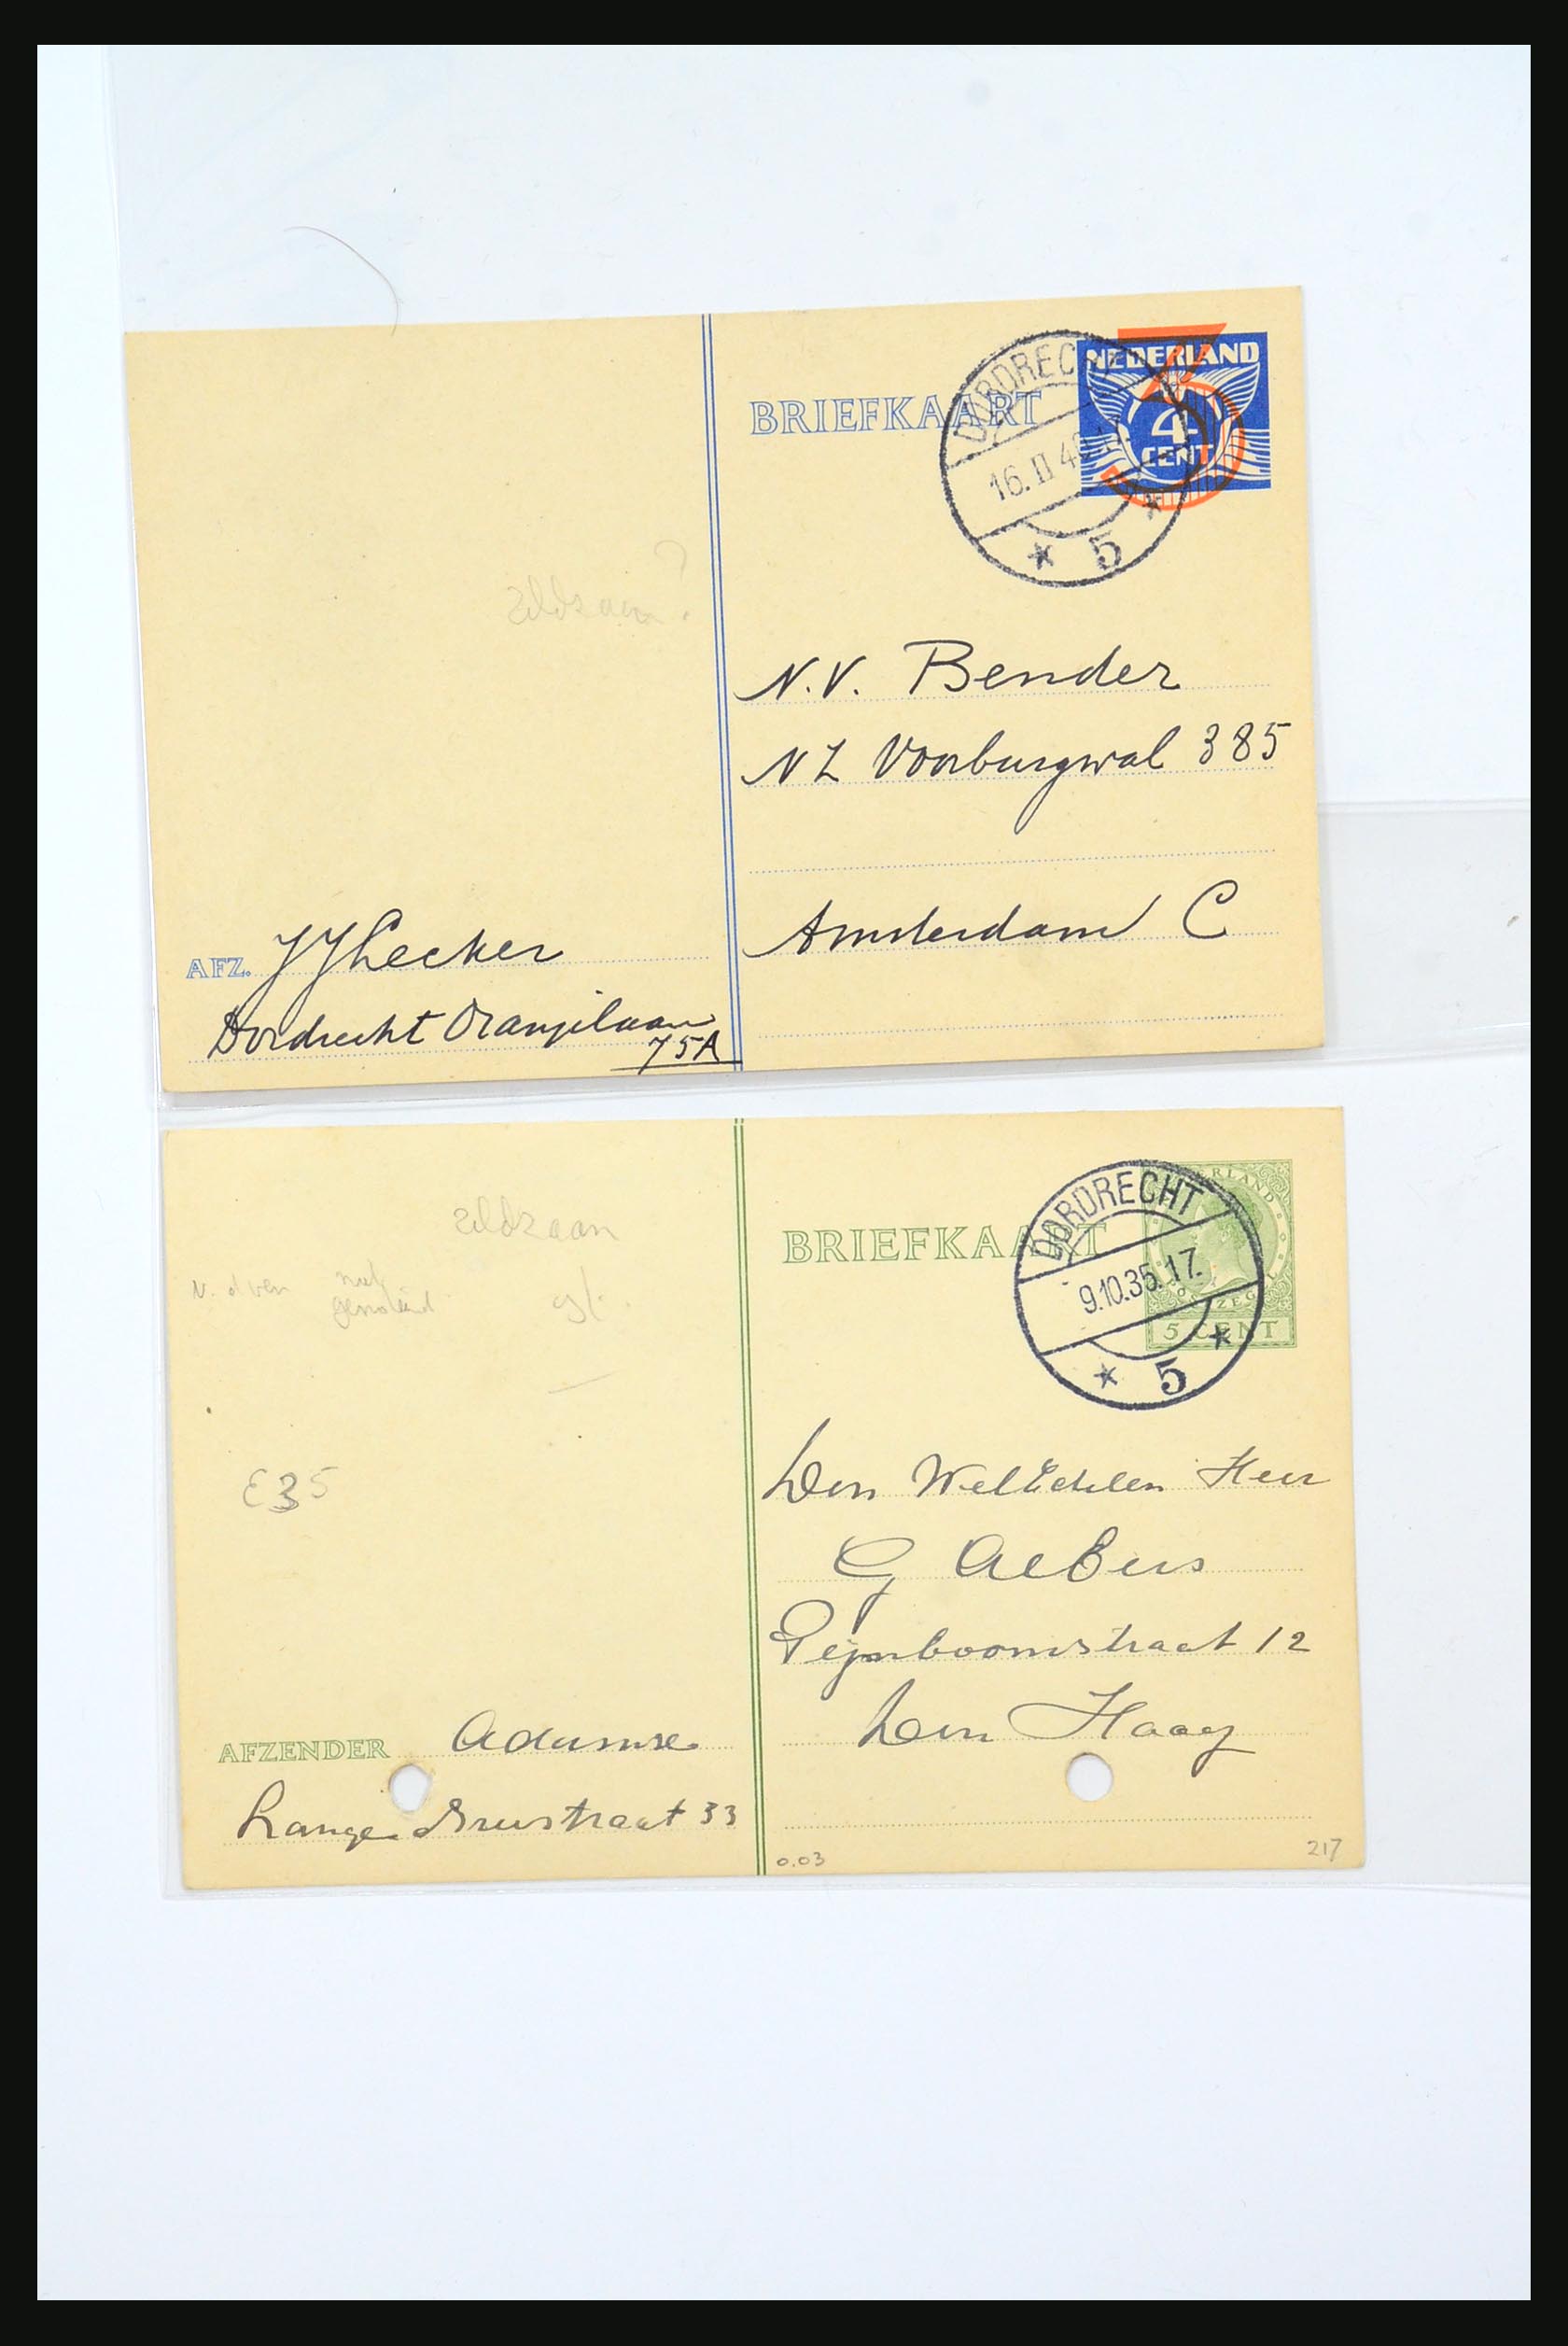 BRIEFKAART
DORDRECHT
16.II 40
* 5 *
NEDERLAND
3
4
CENT
zeldzaam?
N.V. Bender
NZ Voorburgwal 385
Amsterdam C
AFZ. JJ Hecker
Dordrecht Oranjelaan
75A
zeldzaam
niet
E35
BRIEFKAART
DORDRECHT
9.10.35.17.
* 5 *
5 CENT
Den WelEdelen Heer
G Aebers
Pijnboomstraat 12
Den Haag
AFZENDER Adamse
Lange Breestraat 33
0.03
217